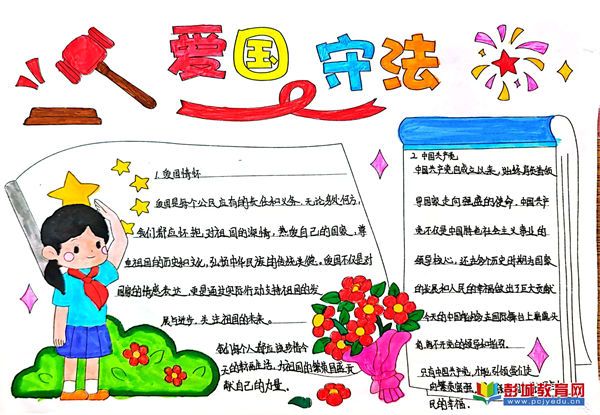 爱国守法
1. 爱国情怀
爱国是每个公民应有的责任和义务。无论身处何方,
我们都应怀抱对祖国的深情,热爱自己的国家,尊
重祖国的历史和文化,弘扬中华民族的传统美德。爱国不仅是对
国家的情感表达,更是通过实际行动支持祖国的发
展与进步,关注祖国的未来。
我们每个人都应珍惜今
天的和平生活,为祖国的繁荣昌盛贡
献自己的力量。
2. 中国共产党
中国共产党自成立以来,始终肩负着领
导国家走向强盛的使命。中国共产
党不仅是中国特色社会主义事业的
领导核心,还在各个历史时期为国家
的发展和人民的幸福做出了巨大贡献
今天的中国能够在国际舞台上昂首
离不开党的领导和指引。
只有中国共产党,才能引领我们走
向繁荣富强
民的幸福。
彭城教育网
www.pcjyedu.cn